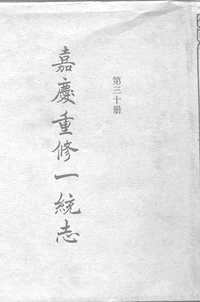 第三十册
嘉慶重修一統志